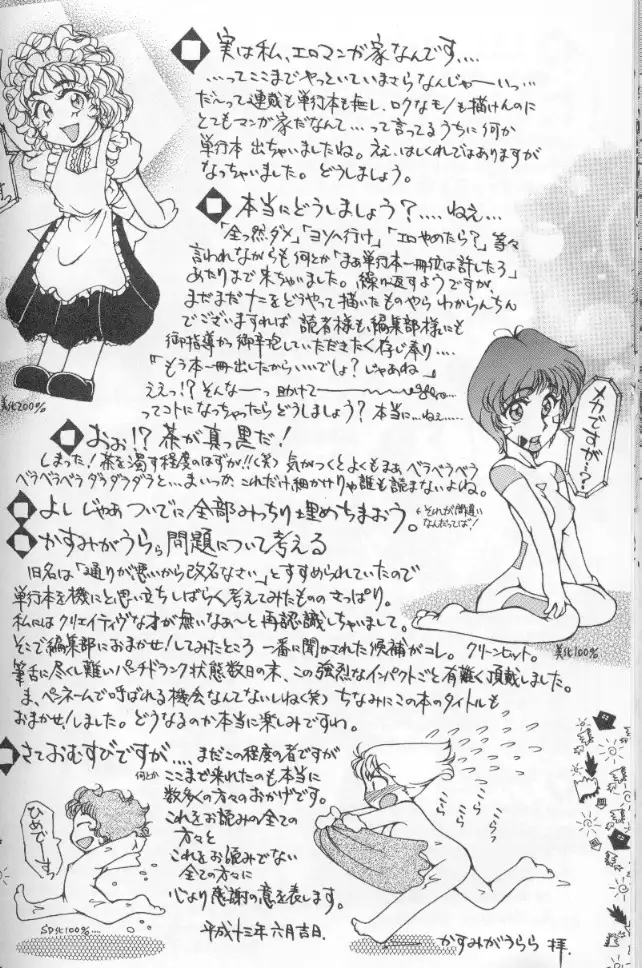 実は私、エロマンガ家なんです....
...ってここまでやっといていまさらなんじゃーいっ...
だ〜って連載も単行本も無し、ロクなモノも描けんのに
とてもマンガ家だなんて...って言ってるうちに何か
単行本出ちゃいましたね。ええ、はしくれではありますが
なっちゃいました。どうしましょう。
本当にどうしましょう?....ねえ...
「全っ然ダメ」「ヨソへ行け」「エロやめたら?」等々
言われながらも何とか「まあ単行本一冊位は許したろ」
あたりまで来ちゃいました。繰り返すようですが、
まだまだナニをどうやって描いたものやらわからんちん
でございますれば読者様も編集部様にも
御指導かつ御辛抱していただきたく存じ奉り....
「もう本一冊出したからいいでしょ?じゃあね」
ええっ!?そんな〜っ助けて〜
ってコトになっちゃったらどうしましょう?本当に...ねえ....
美化200%
メカですが...?
美化100%
おぉ!?茶が真っ黒だ!
しまった!茶を濁す程度のはずが!!(笑)気がつくとよくもまぁベラベラベラ
ベラベラベラダラダラダラと...まいっか、これだけ細かけりゃ誰も読まないよね。
よしじゃあついでに全部みっちり埋めちまおう。
←それが間違い
なんだってば!
かすみがうらら問題について考える
旧名は「通りが悪いから改名なさい」とすすめられていたので
単行本を機にと思い立ちしばらく考えてみたもののさっぱり。
私にはクリエイティヴな才が無いなあ〜と再認識しちゃいまして。
そこで編集部におまかせ!してみたところ一番に聞かされた候補がコレ。クリーンヒット。
筆舌に尽くし難いパンチドランク状態数日の末、この強烈なインパクトごと有難く頂戴しました。
ま、ペンネームで呼ばれる機会なんてないしね(笑)ちなみにこの本のタイトルも
おまかせ!しました。どうなるのか本当に楽しみですわ。
さておむすびですが....まだこの程度の者ですが
何とかここまで来れたのも本当に
数多くの方々のおかげです。
これをお読みの全ての
方々と
これをお読みでない
全ての方々に
心より感謝の意を表します。
平成十三年六月吉日.
かすみがうらら 拝.
ひめですっ
SD化100%...
うらら
うらら